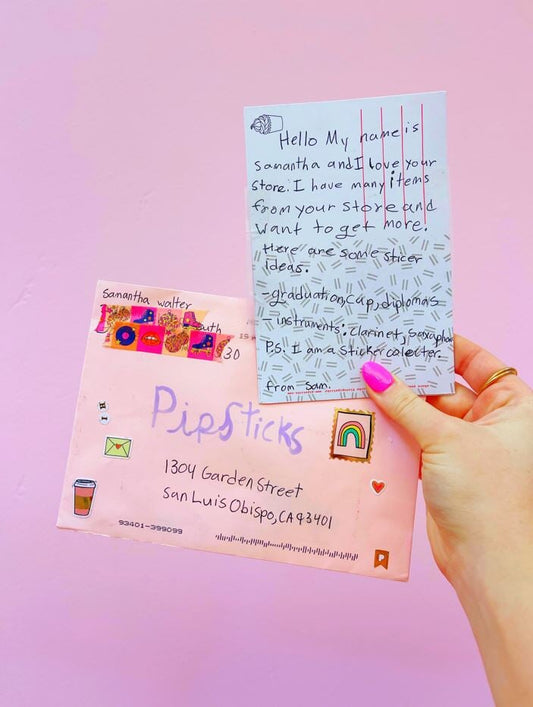 Hello My name is
samantha and I love your
store. I have many items
from your store and
want to get more.
Here are some sticer
ideas.
-graduation, cap, diplomas
- instruments: clarinet, saxaphone
P.S. I am a sticker colecter.
from Sam.
Samantha walter
outh
30
HI
PipSticks
1304 Garden Street
San Luis Obispo, CA 93401
93401-399099
P